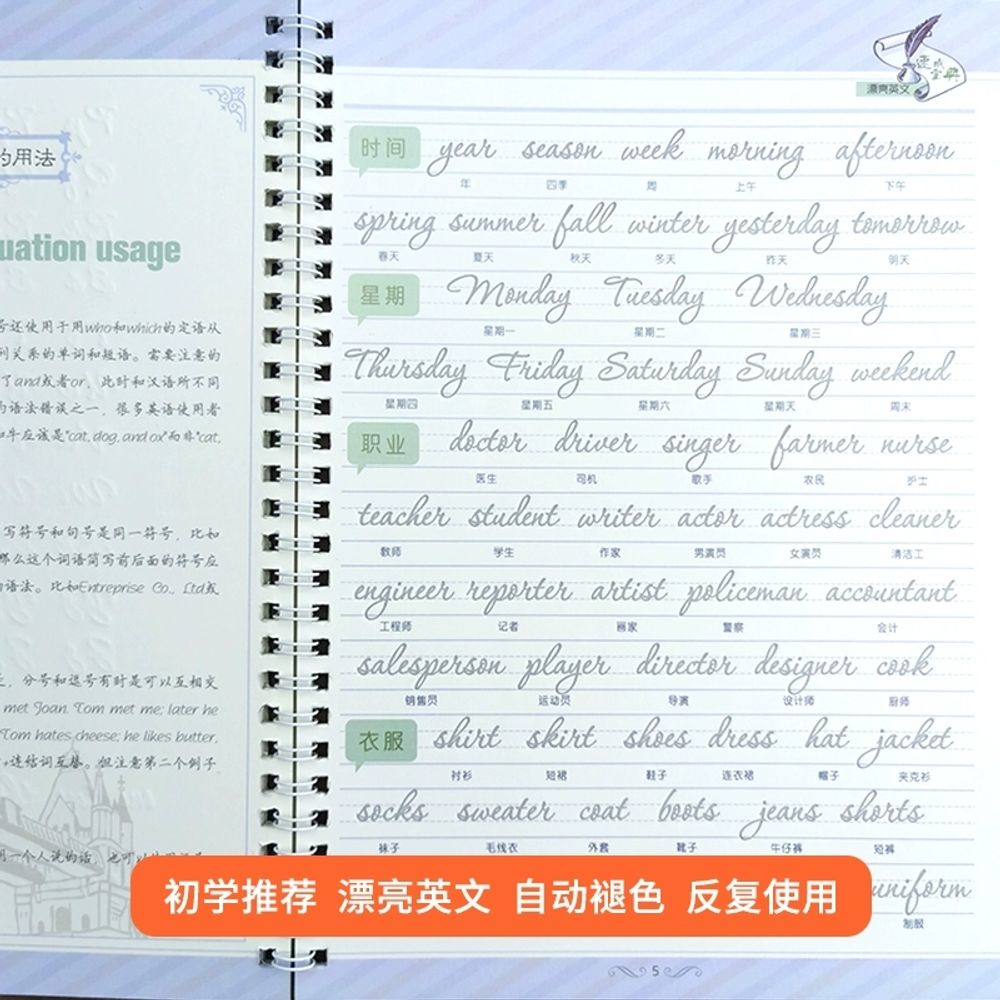 的用法
uation usage
号还使用于用who和which的定语从
列关系的单词和短语。需要注意的
了and或者or，此时和汉语所不同
的语法错误之一，很多英语使用者
和牛应该是"cat, dog, and ox"而非"cat,
写符号和句号是同一符号，比如
那么这个词语简写前后面的符号应
语法。比如Entreprise Co., Ltd或
分号和逗号有时是可以互相交
met Joan. Tom met me; later he
Tom hates cheese; he likes butter.
连结词互替。但注意第二个例子
用一个人说的话，也可以
速成宝典
漂亮英文
时间 year season week morning afternoon
年 四季 周 上午 下午
spring summer fall winter yesterday tomorrow
春天 夏天 秋天 冬天 昨天 明天
星期 Monday Tuesday Wednesday
星期一 星期二 星期三
Thursday Friday Saturday Sunday weekend
星期四 星期五 星期六 星期天 周末
职业 doctor driver singer farmer nurse
医生 司机 歌手 农民 护士
teacher student writer actor actress cleaner
教师 学生 作家 男演员 女演员 清洁工
engineer reporter artist policeman accountant
工程师 记者 画家 警察 会计
salesperson player director designer cook
销售员 运动员 导演 设计师 厨师
衣服 shirt skirt shoes dress hat jacket
衬衫 短裙 鞋子 连衣裙 帽子 夹克衫
socks sweater coat boots jeans shorts
袜子 毛线衣 外套 靴子 牛仔裤 短裤
uniform
制服
初学推荐 漂亮英文 自动褪色 反复使用
5